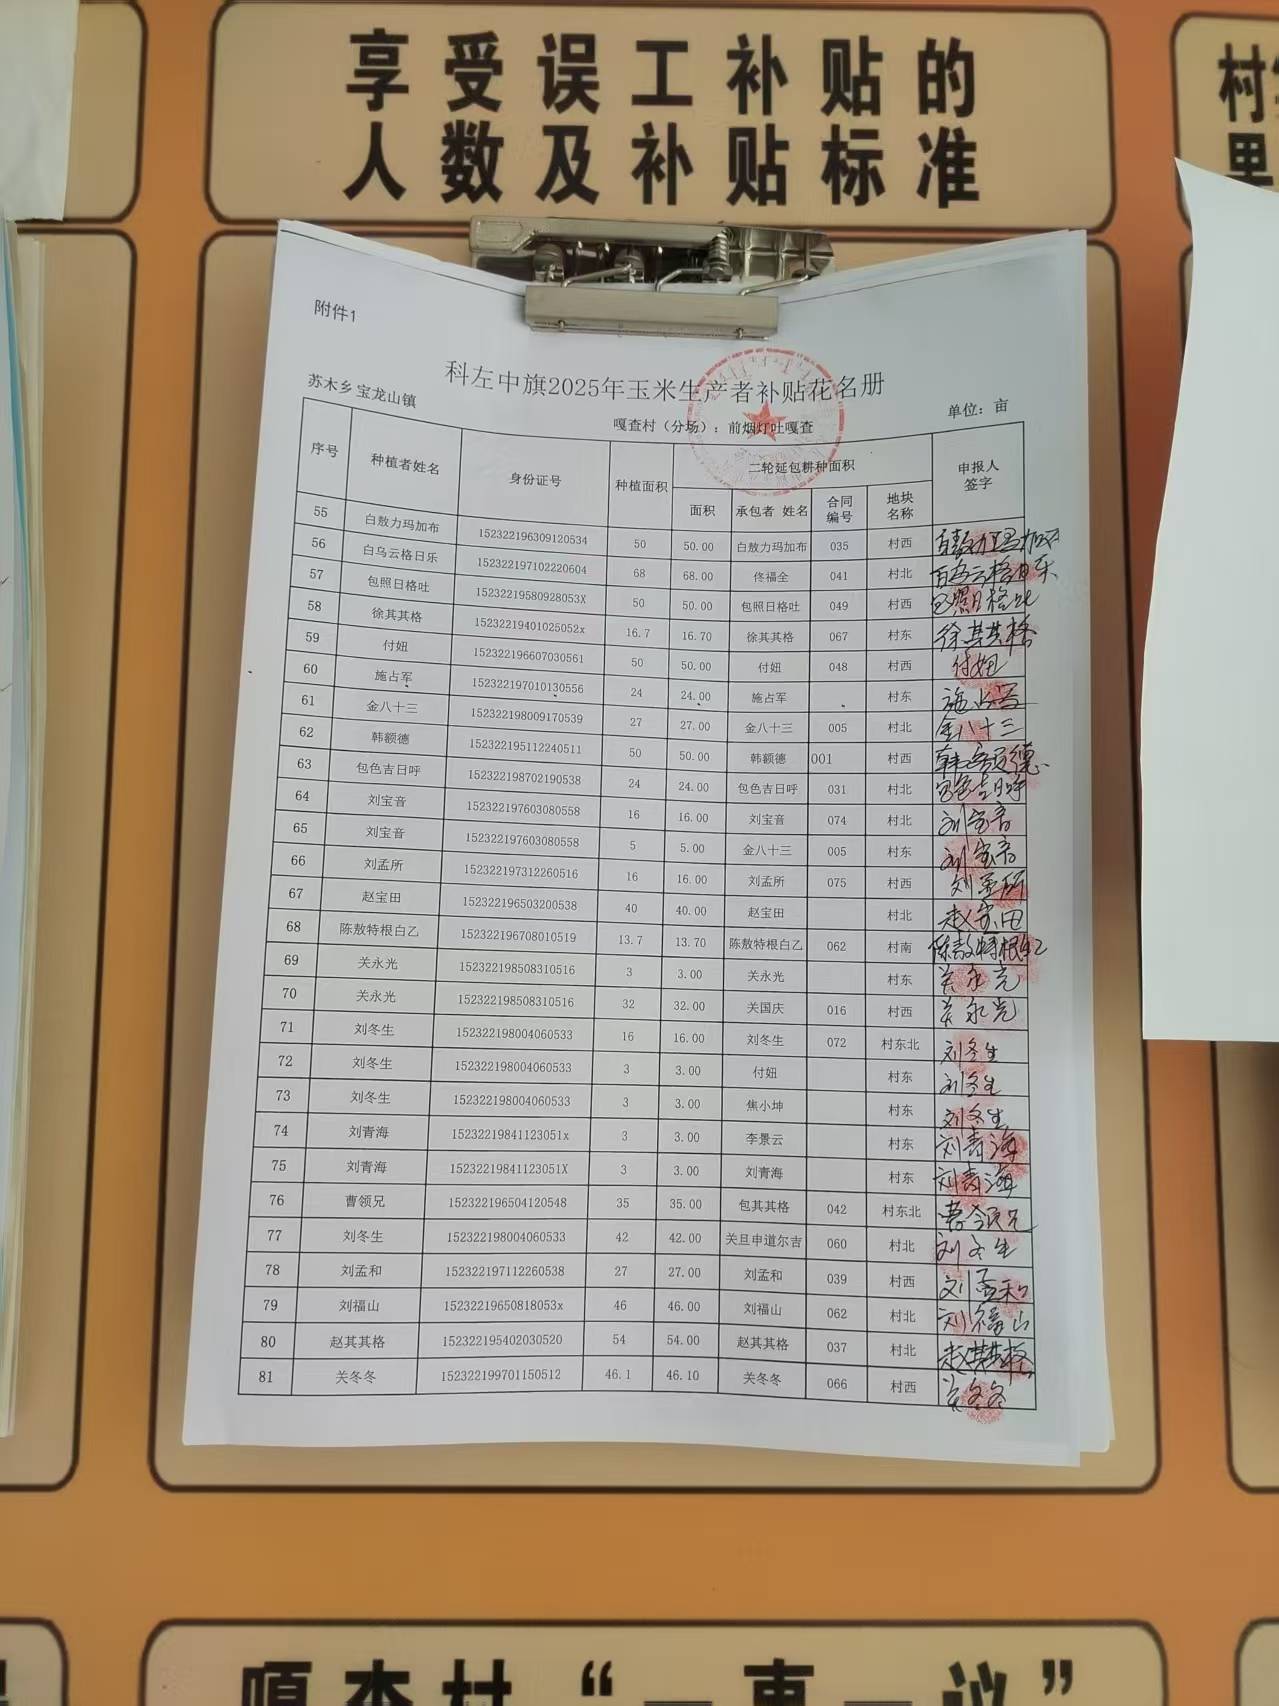 享受误工补贴的
人数及补贴标准
村
里
附件1
科左中旗2025年玉米生产者补贴花名册
苏木乡 宝龙山镇 嘎查村（分场）：前烟灯吐嘎查 单位：亩
序号 种植者姓名 身份证号 种植面积 二轮延包耕种面积 申报人签字
面积 承包者 姓名 合同编号 地块名称
55 白敖力玛加布 152322196309120534 50 50.00 白敖力玛加布 035 村西 白敖力玛加布
56 白乌云格日乐 152322197102220604 68 68.00 佟福全 041 村北 白乌云格日乐
57 包照日格吐 15232219580928053X 50 50.00 包照日格吐 049 村西 包照日格吐
58 徐其其格 15232219401025052x 16.7 16.70 徐其其格 067 村东 徐其其格
59 付妞 152322196607030561 50 50.00 付妞 048 村西 付妞
60 施占军 152322197010130556 24 24.00 施占军 村东 施占军
61 金八十三 152322198009170539 27 27.00 金八十三 005 村北 金八十三
62 韩额德 152322195112240511 50 50.00 韩额德 001 村西 韩额德
63 包色吉日呼 152322198702190538 24 24.00 包色吉日呼 031 村北 包色吉日呼
64 刘宝音 152322197603080558 16 16.00 刘宝音 074 村北 刘宝音
65 刘宝音 152322197603080558 5 5.00 金八十三 005 村东 刘宝音
66 刘孟所 152322197312260516 16 16.00 刘孟所 075 村西 刘孟所
67 赵宝田 152322196503200538 40 40.00 赵宝田 村北 赵宝田
68 陈敖特根白乙 152322196708010519 13.7 13.70 陈敖特根白乙 062 村南 陈敖特根白乙
69 关永光 152322198508310516 3 3.00 关永光 村东 关永光
70 关永光 152322198508310516 32 32.00 关国庆 016 村西 关永光
71 刘冬生 152322198004060533 16 16.00 刘冬生 072 村东北 刘冬生
72 刘冬生 152322198004060533 3 3.00 付妞 村东 刘冬生
73 刘冬生 152322198004060533 3 3.00 焦小坤 村东 刘冬生
74 刘青海 15232219841123051x 3 3.00 李景云 村东 刘青海
75 刘青海 15232219841123051X 3 3.00 刘青海 村东 刘青海
76 曹领兄 152322196504120548 35 35.00 包其其格 042 村东北 曹领兄
77 刘冬生 152322198004060533 42 42.00 关旦申道尔吉 060 村北 刘冬生
78 刘孟和 152322197112260538 27 27.00 刘孟和 039 村西 刘孟和
79 刘福山 15232219650818053x 46 46.00 刘福山 062 村北 刘福山
80 赵其其格 152322195402030520 54 54.00 赵其其格 037 村北 赵其其格
81 关冬冬 152322199701150512 46.1 46.10 关冬冬 066 村西 关冬冬
嘎查村“一事一议”